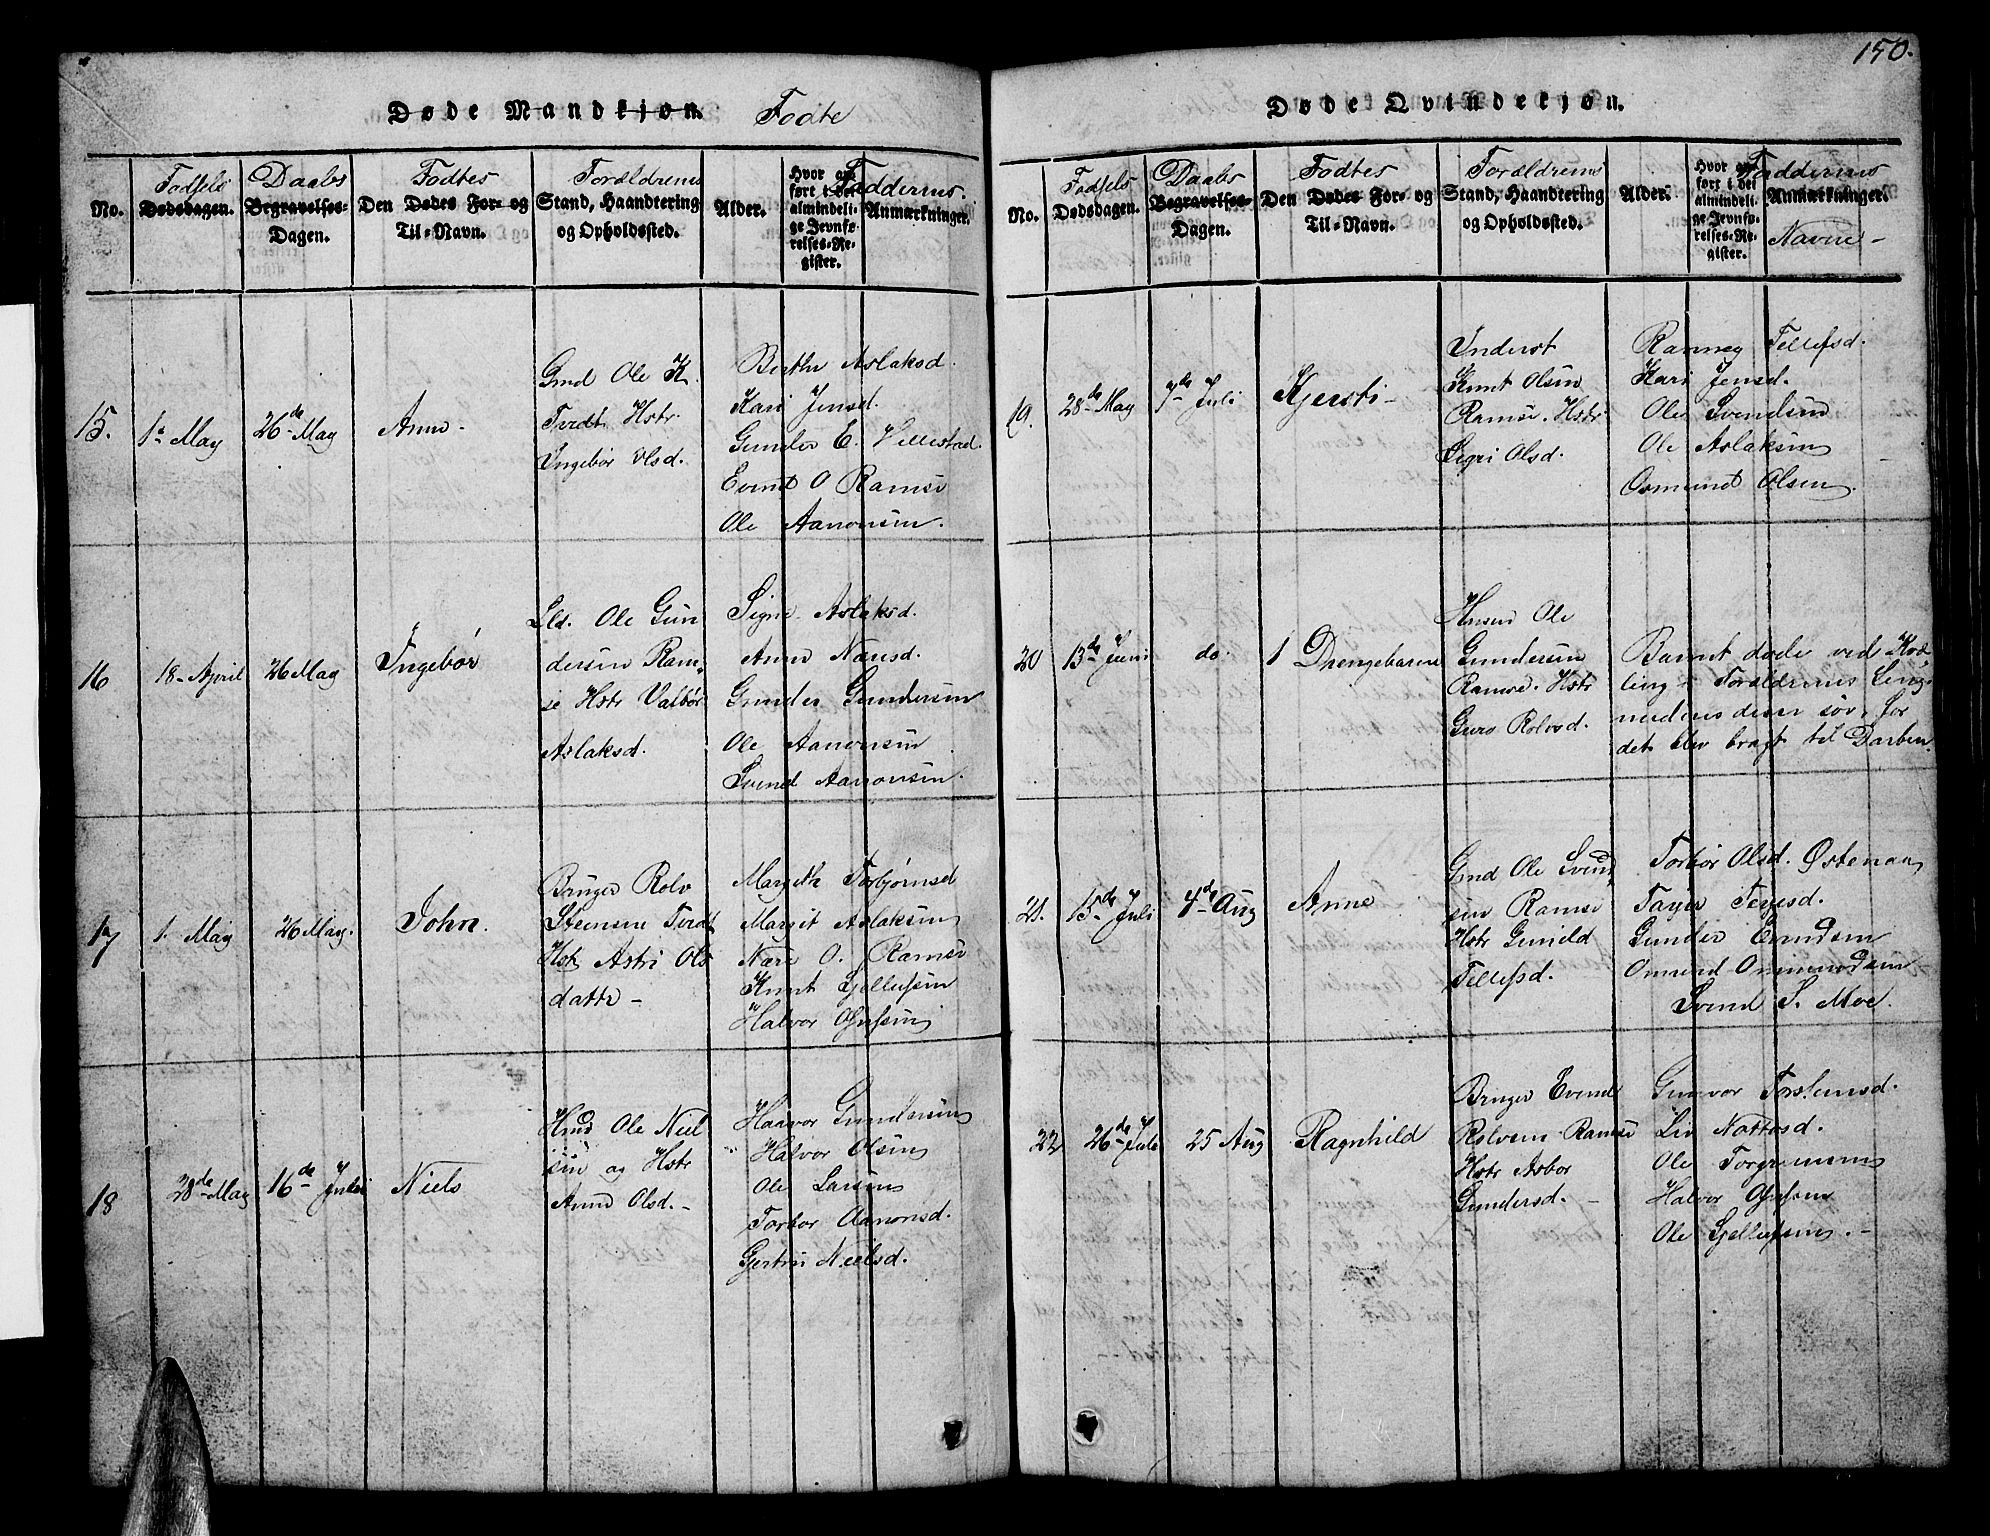 150.
Døde Mandkjøn. Fødte
No.
Fødsels
Dødsdagen.
Daabs
Begravelses-
Dagen.
Fødtes
Den Dødes For- og
Til-Navn.
Forældrenes
Stand, Haandtering
og Opholdssted.
Alder.
Hvor an-
ført i det
almindeli-
ge Jevnfø-
relses-Re-
gister.
Faddernes
Anmærkninger.
15. 1. May 26de May Anne -
Gmd Ole K.
Tvedt Hstr.
Ingebør Olsd.
Berthe Aslaksd.
Kari Jensd.
Gunder E. Villestad.
Evend O Ramse
Ole Aanonsen.
16 18 April 26 May Ingebør
Lld. Ole Gun
dersen Ram-
se Hstr Valbør
Aslaksd.
Signe Aslaksd.
Anne Næsd.
Gunder Gundersen
Ole Aanonsen
Svend Aanonsen.
17 1. May 26 May. John.
Bruger Rolv
Steensen Tvedt
Hst. Astri Ols
datter -
Margith Torbjørnsd
Margit Aslaksen
Nære O. Ramse
Knut Gjellufsen
Halvor Olufsen
18 28de May 16de Juli Niels
Hmd Ole Niel
sen og Hstr
Anne Olsd. -
Haavor Gundersen
Halvor Olsen
Ole Larsen
Torbor Aanonsd.
Gertrú Nielsd.
Døde Qvindekjøn.
No.
Fødsels
Dødsdagen.
Daabs
Begravelses-
Dagen.
Fødtes
Den Dødes For- og
Til-Navn.
Forældrenes
Stand, Haandtering
og Opholdssted.
Alder.
Hvor an-
ført i det
almindeli-
ge Jevnfø-
relses-Re-
gister.
Faddernes
Anmærkninger.
Navne -
19. 28de May 7de Juli Kjersti -
Inderst
Knut Olsen
Ramse. Hstr
Sigri Olsd.
Ramneg Tellefsd.
Kari Jensd.
Ole Svendsen
Ole Aslaksen
Osmund Olsen.
20 13de Juni do. 1 Drengebarn
Husm Ole
Gundersen
Ramse. Hstr
Guro Rolvsd.
Barnet døde ved Kvæ
ling i Forældrenes Seng
det blev bragt til Daaben
21. 15de Juli 4de Aug Anne
Gmd Ole Svend
sen Ramse
Hstr Gunild
Tellefsd.
Torbor Olsd. Østenaa
Tarjer Terjesd.
Gunder Evendsen
Omund Ommundsen
Svend S. Moe.
22 26de Juli 25 Aug Ragnhild
Bruger Evend
Rolvsen Ramse
Hstr Asbor
Gundersd. -
Gunvor Torstensd.
Liv Nottosd.
Ole Torgrimsen
Halvor Olufsen
Ole Gjellufsen. -